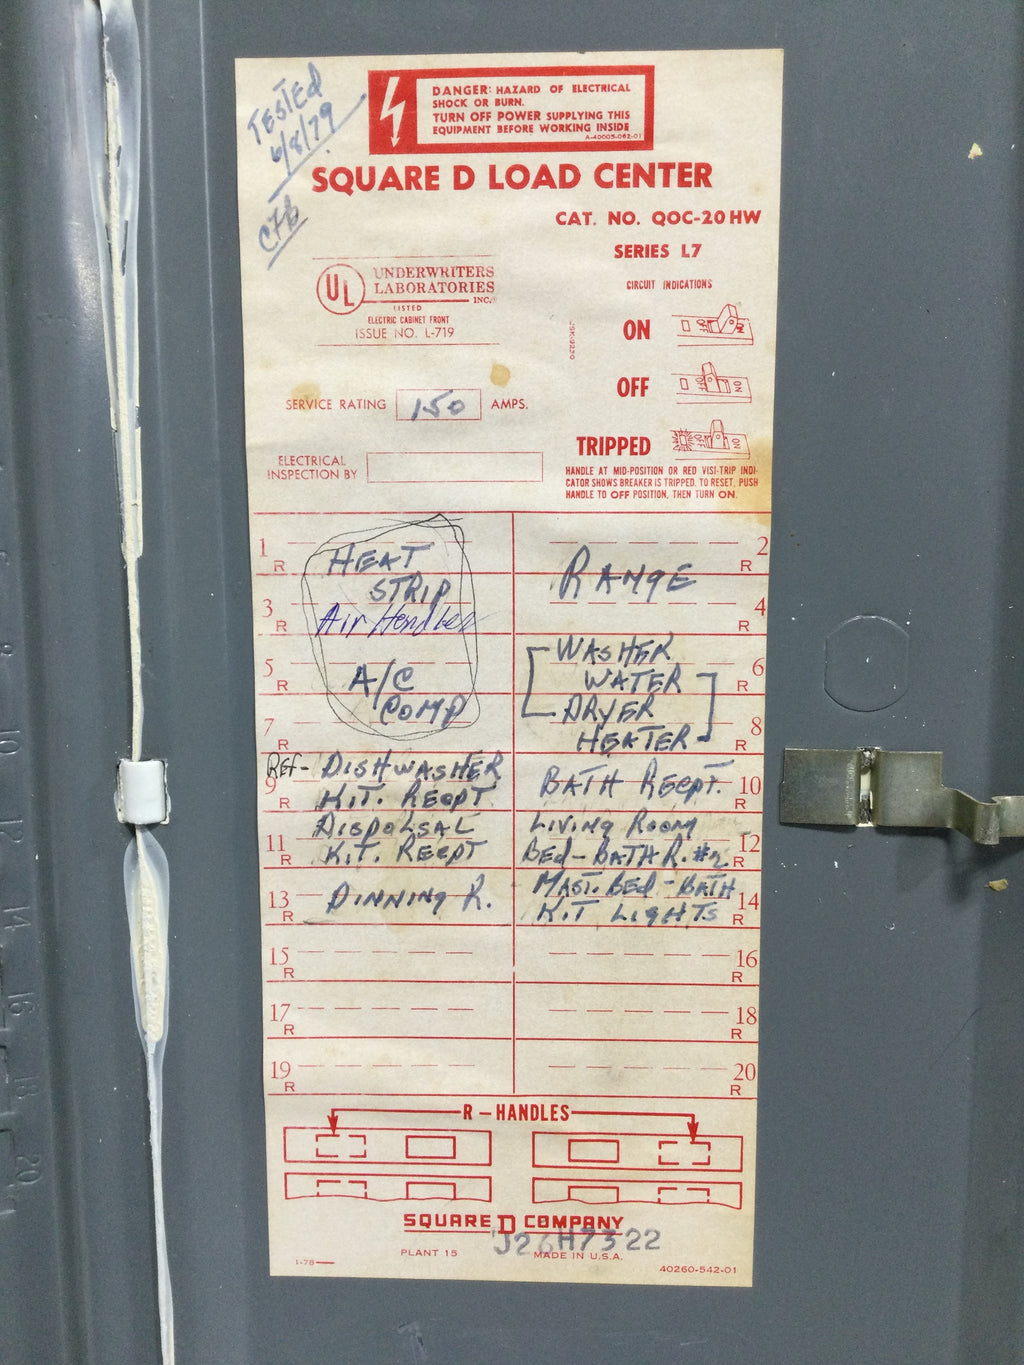 TESTEd
6/8/79
CFB
DANGER: HAZARD OF ELECTRICAL
SHOCK OR BURN.
TURN OFF POWER SUPPLYING THIS
EQUIPMENT BEFORE WORKING INSIDE
A-40005-062-01
SQUARE D LOAD CENTER
CAT. NO. QOC-20 HW
SERIES L7
UL
UNDERWRITERS
LABORATORIES
INC.®
LISTED
ELECTRIC CABINET FRONT
ISSUE NO. L-719
CIRCUIT INDICATIONS
ON
OFF
TRIPPED
HANDLE AT MID-POSITION OR RED VISI-TRIP INDI-
CATOR SHOWS BREAKER IS TRIPPED. TO RESET, PUSH
HANDLE TO OFF POSITION, THEN TURN ON.
SERVICE RATING 150 AMPS.
ELECTRICAL
INSPECTION BY
1 R HEAT
STRIP
3 R Air Handler
5 R A/C
7 R COMP
2 R RANGE
4 R
6 R WASHER
WATER
8 R DRYER
HEATER
REF- DISHWASHER
9 KIT. RECPT
BATH RECPT. 10
DISPOLSAL
11 R KIT. RECPT
LIVING ROOM
BEd-BATH R. #2 12 R
13 R DINNING R.
MAST. BEd-BATH
KIT LIGHTS 14 R
15 R
16 R
17 R
18 R
19 R
20 R
R-HANDLES
SQUARE D COMPANY
J26H7322
PLANT 15
MADE IN U.S.A.
1-78
40260-542-01
8
10
12
14
16
18
20